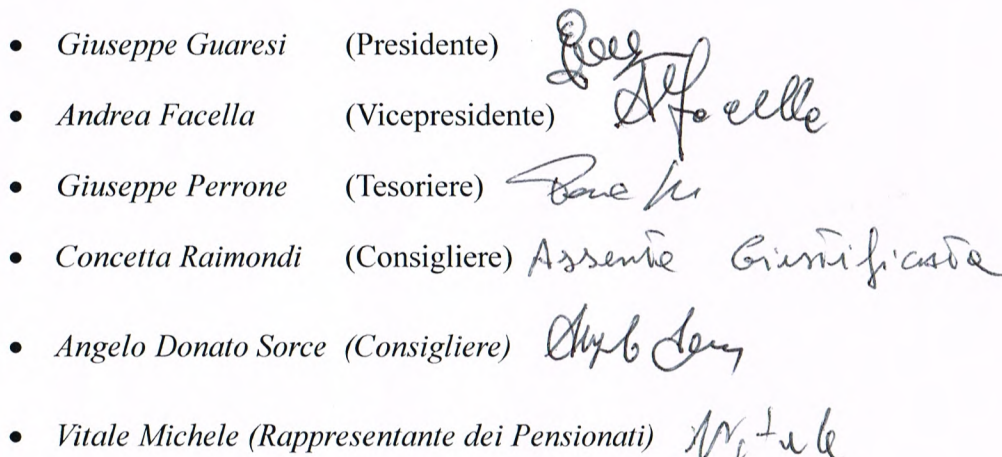 • Giuseppe Guaresi (Presidente)
• Andrea Facella (Vicepresidente) A Facella
• Giuseppe Perrone (Tesoriere)
• Concetta Raimondi (Consigliere) Assente Giustificata
• Angelo Donato Sorce (Consigliere) Angelo Sorce
• Vitale Michele (Rappresentante dei Pensionati)